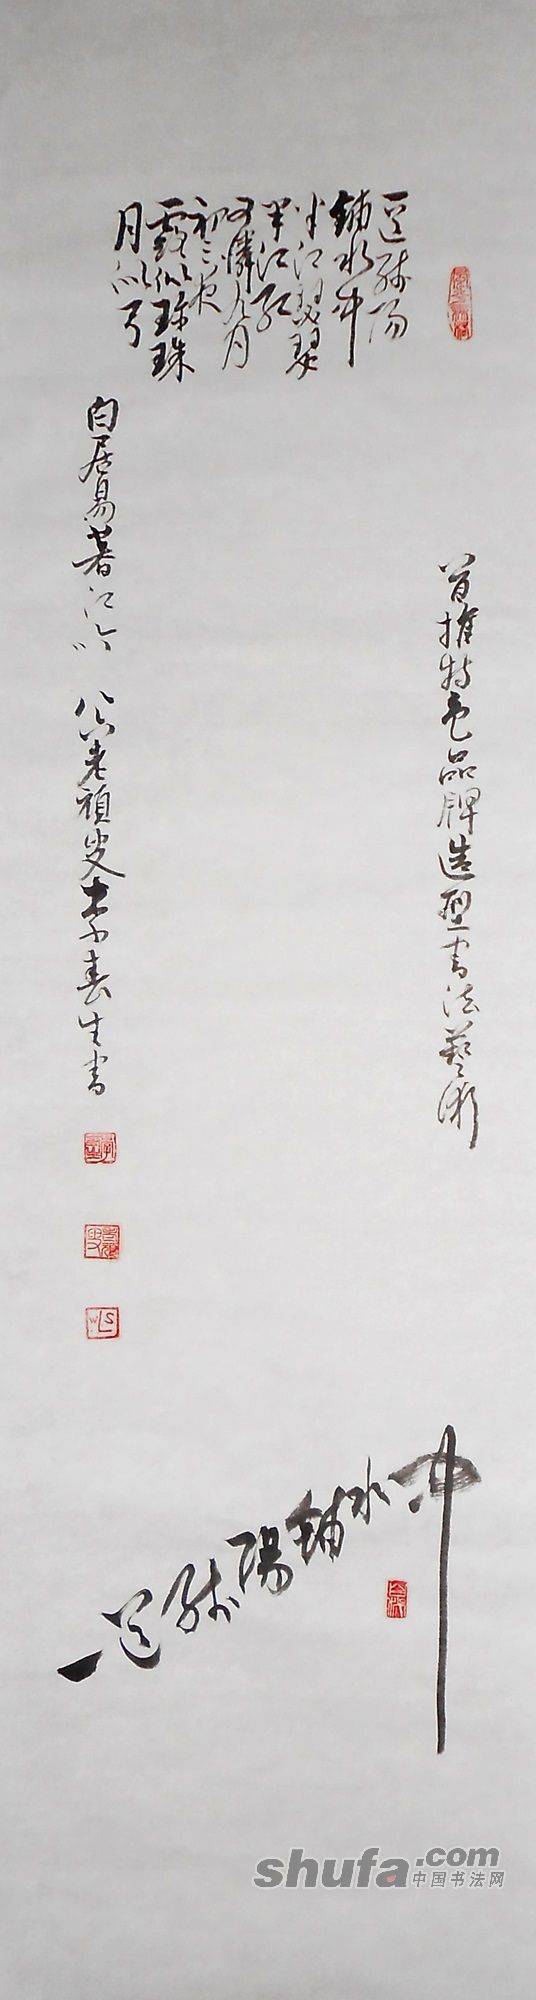 一道残阳
铺水中
半江瑟瑟
半江红
可憐九月
初三夜
露似珍珠
月似弓
首推特色品牌造型書法藝術
白居易暮江吟 八六老頑叟李春生書
一道残陽鋪水中
shufa.com
中国书法网